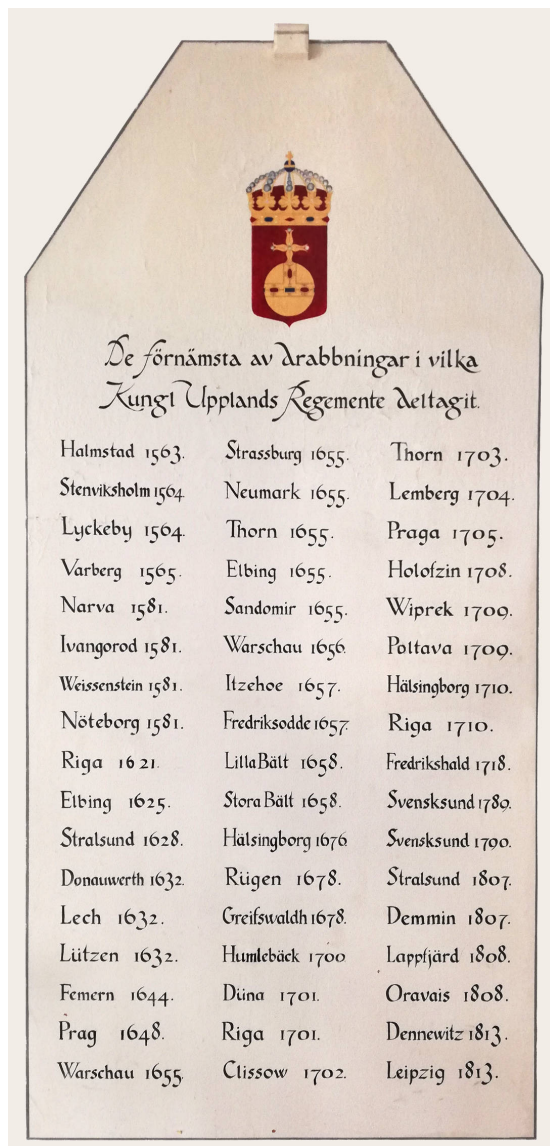 De förnämsta av drabbningar i vilka
Kungl Upplands Regemente deltagit.
Halmstad 1563.
Stenviksholm 1564
Lyckeby 1564.
Varberg 1565.
Narva 1581.
Ivangorod 1581.
Weissenstein 1581.
Nöteborg 1581.
Riga 1621.
Elbing 1625.
Stralsund 1628.
Donauwerth 1632.
Lech 1632.
Lützen 1632.
Femern 1644.
Prag 1648.
Warschau 1655.
Strassburg 1655.
Neumark 1655.
Thorn 1655.
Elbing 1655.
Sandomir 1655.
Warschau 1656.
Itzehoe 1657.
Fredriksodde 1657.
Lilla Bält 1658.
Stora Bält 1658.
Hälsingborg 1676
Rügen 1678.
Greifswaldh 1678.
Humlebäck 1700
Düna 1701.
Riga 1701.
Clissow 1702.
Thorn 1703.
Lemberg 1704.
Praga 1705.
Holofzin 1708.
Wiprek 1709.
Poltava 1709.
Hälsingborg 1710.
Riga 1710.
Fredrikshald 1718.
Svensksund 1789.
Svensksund 1790.
Stralsund 1807.
Demmin 1807.
Lappfjärd 1808.
Oravais 1808.
Dennewitz 1813.
Leipzig 1813.